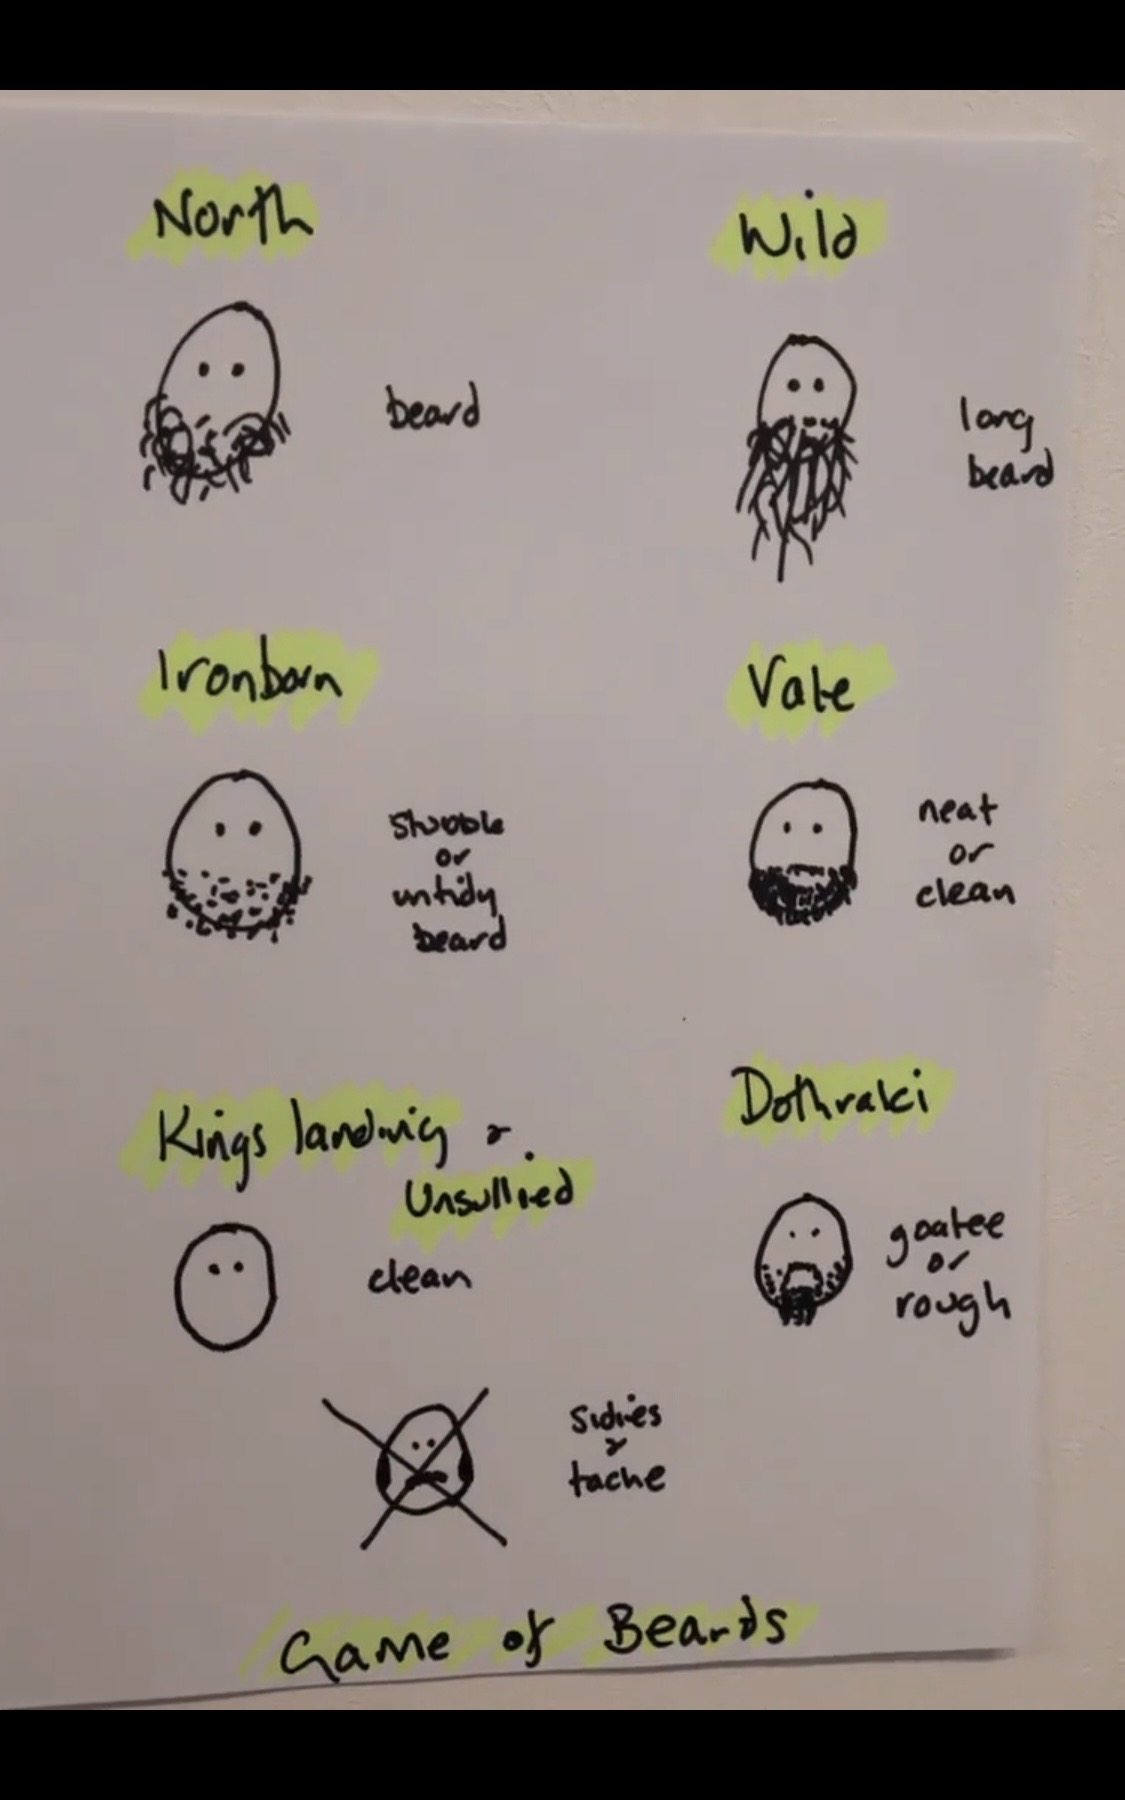 North
Wild
beard
long
beard
Ironborn
Vale
Stubble
or
untidy
beard
neat
or
clean
Kings landing &
Unsullied
Dothraki
clean
goatee
or
rough
Sidies
&
tache
Game of Beards